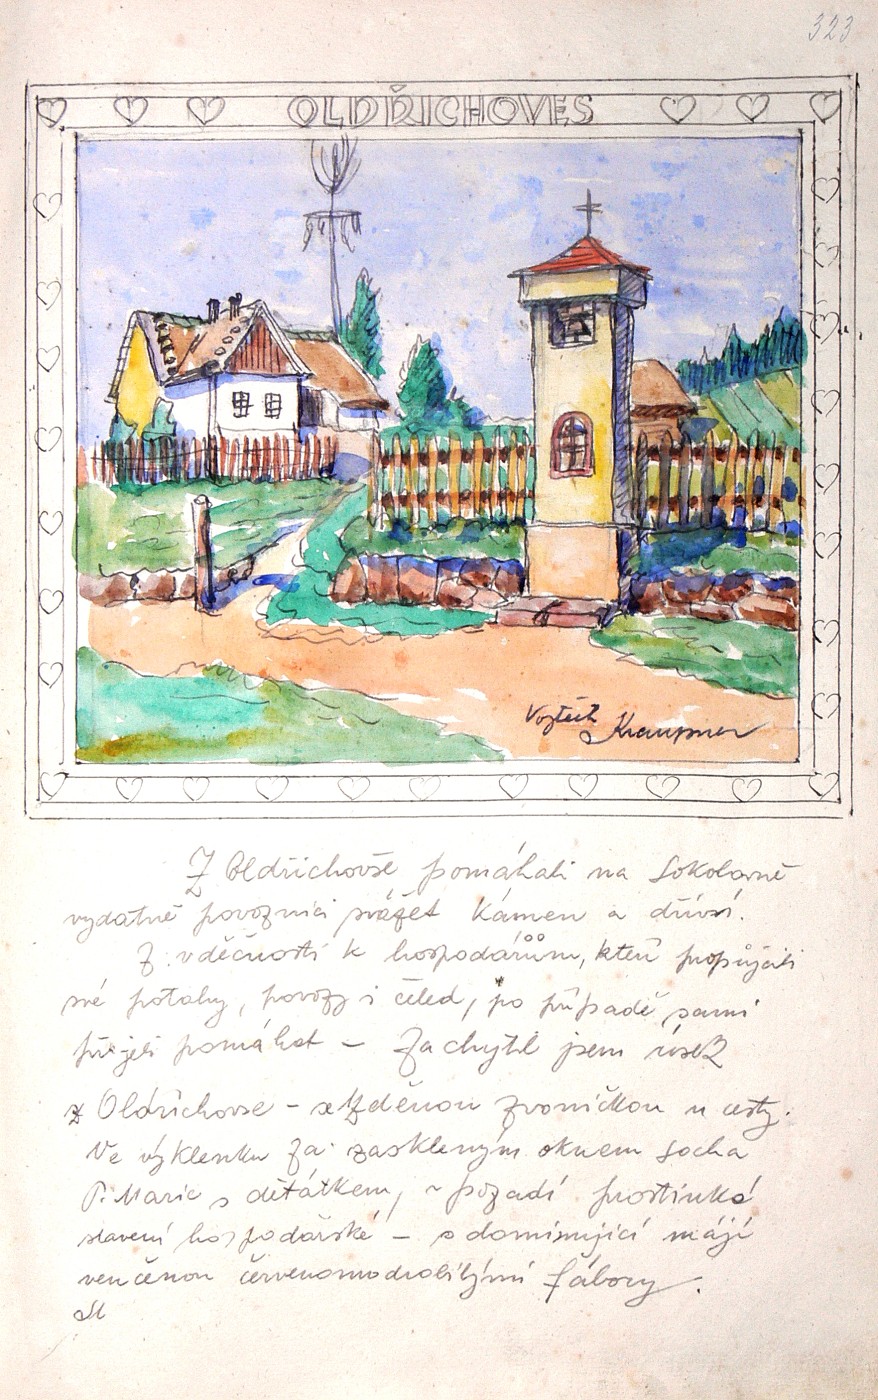 323
OLDŘICHOVES
Vojtěch Kraupner
Z Oldřichovse pomáhali na Sokolovně
vydatně povozníci svážet kámen a dříví.
Z vděčnosti k hospodářům, kteří propůjčili
své potahy, povozy i čeleď, po případě sami
přijeli pomáhat – zachytil jsem úsek
z Oldřichovse – se zděnou zvoničkou u cesty.
Ve výklenku za zaskleným oknem socha
P. Marie s děťátkem, v pozadí prostinké
stavení hospodářské – s dominující májí
venčenou červenomodrobílými fábory.